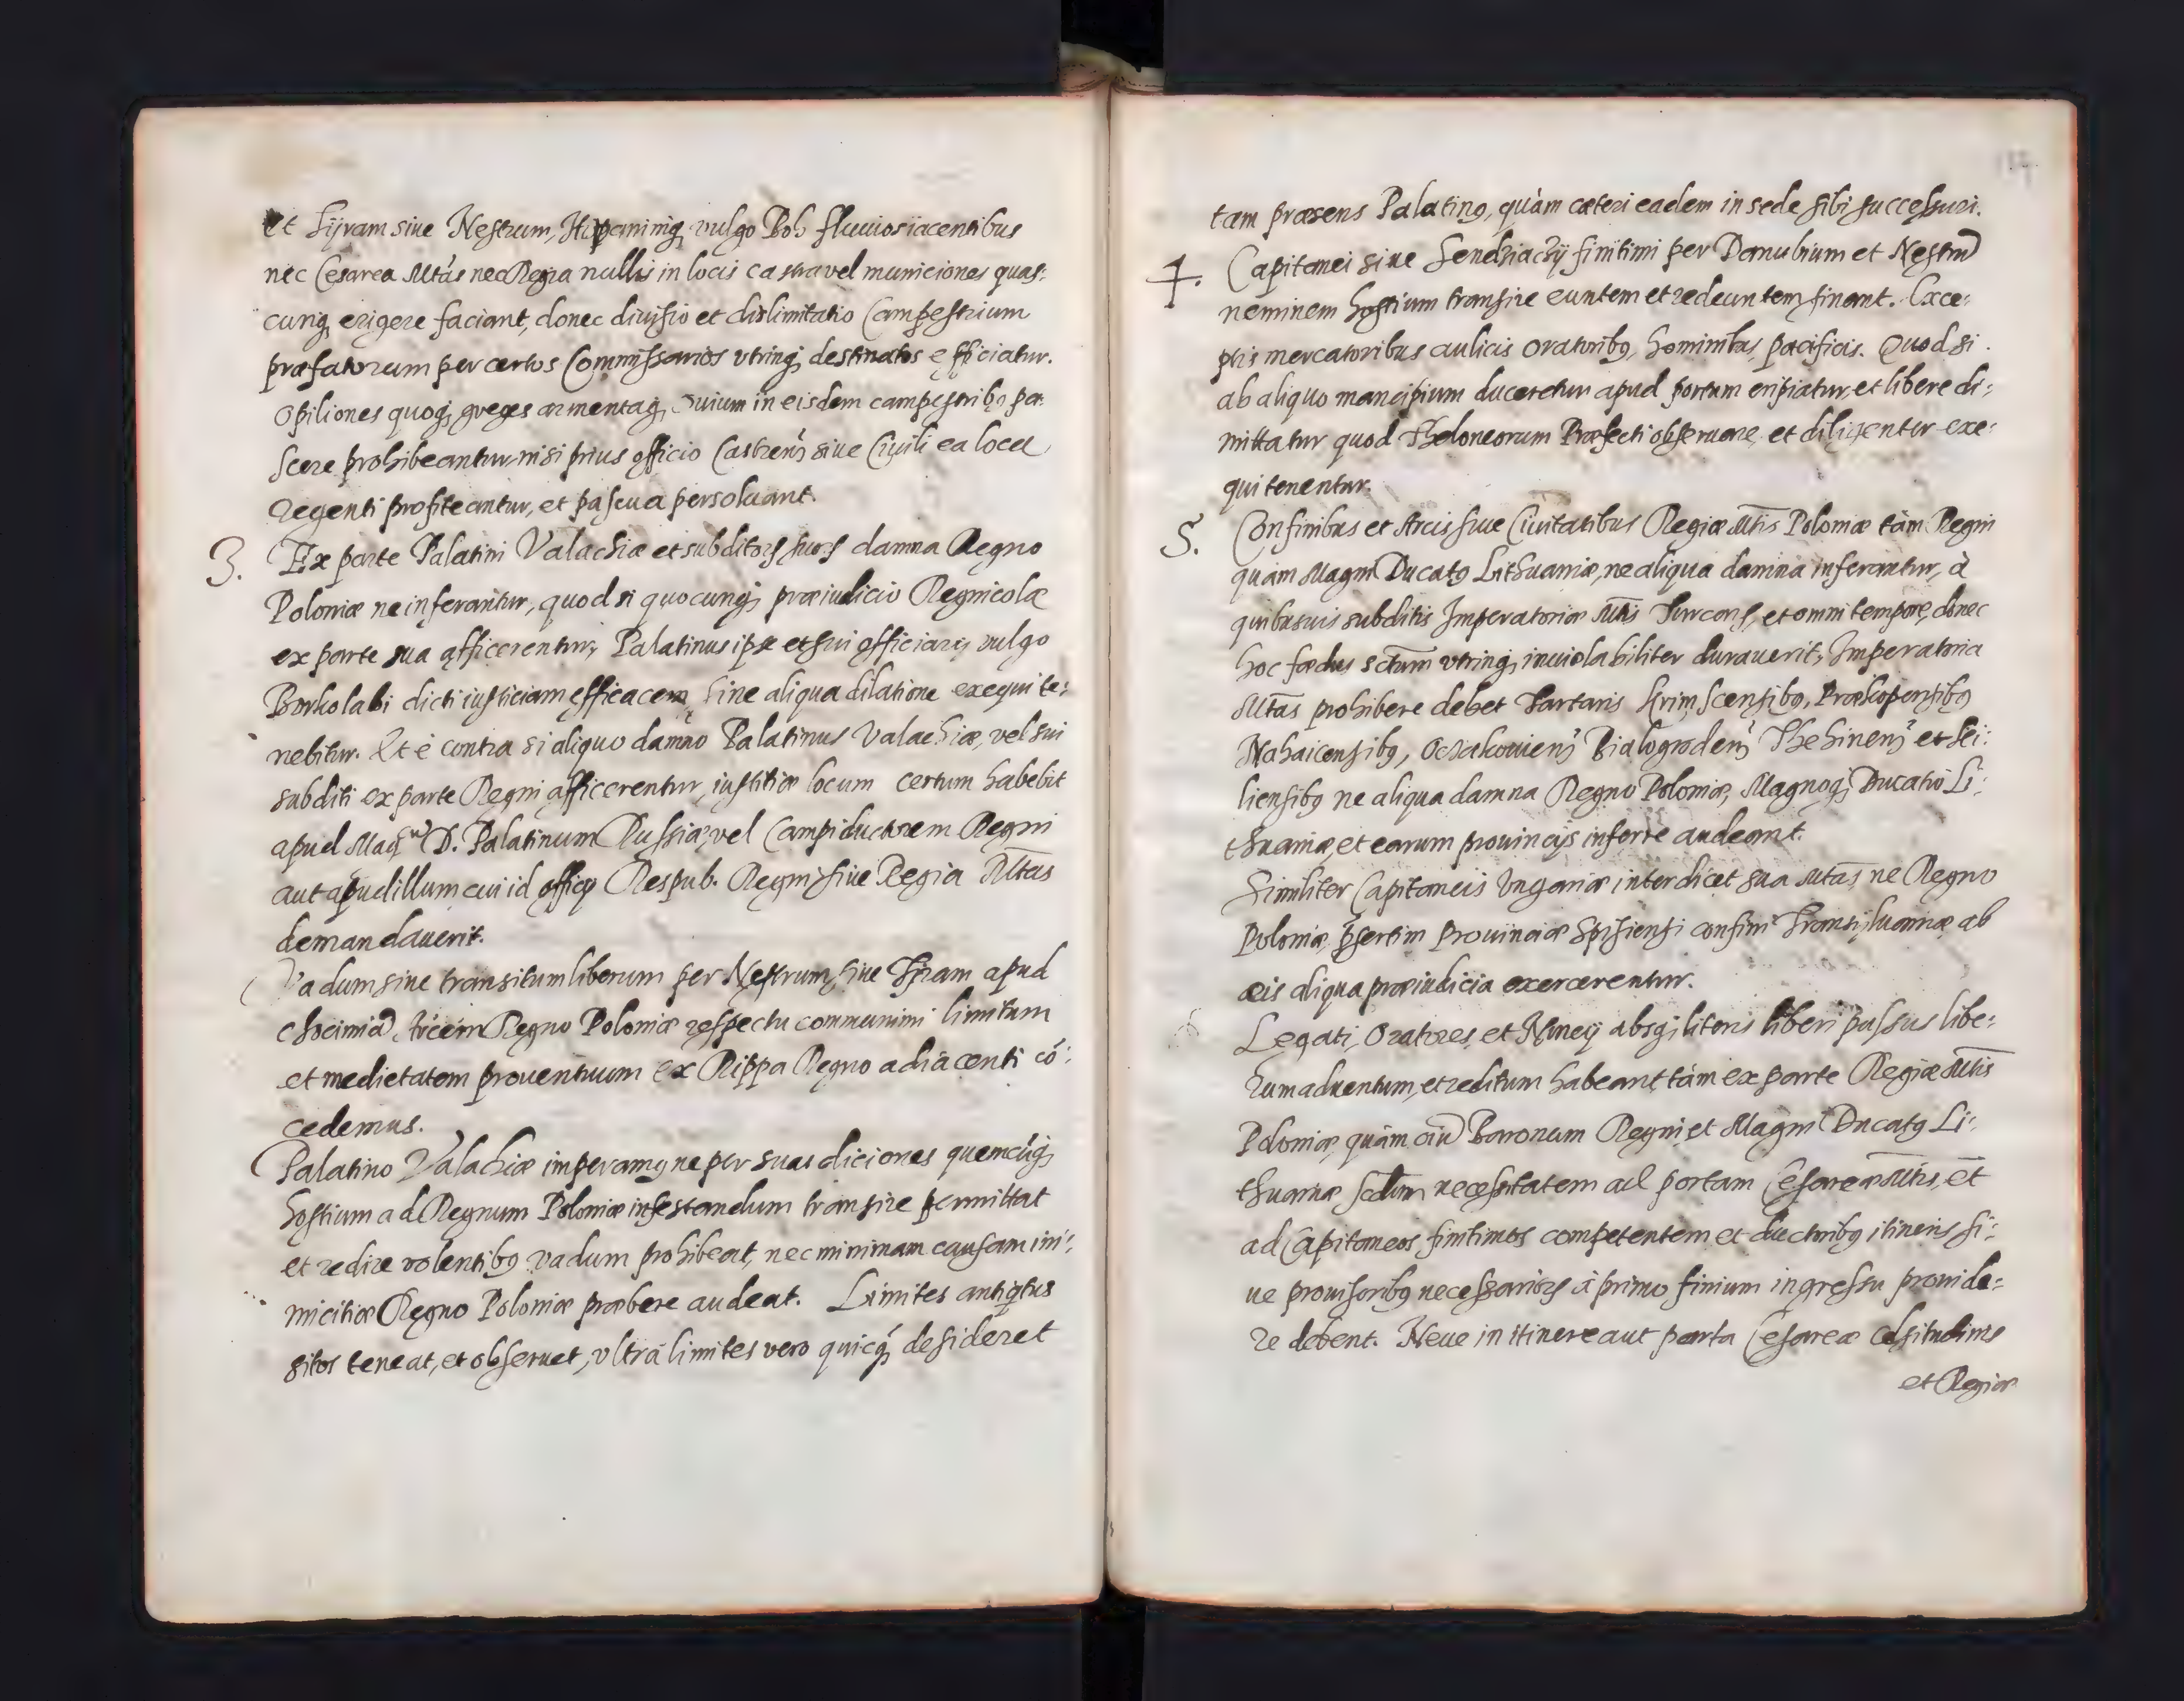 et Tijram siue Nestrum, Hipanimq, vulgo Boh fluuios iacentibus
nec Cesarea Mtás nec Regia nullis in locis castra vel municiones quas:
cunq, erigere faciant, donec diuisio et dislimitatio Campestrium
præfatorum per certos Commissarios vtrinq, destinatos efficiatur.
Opiliones quoq, greges armentaq, ouium in eisdem campestribq pa:
scere prohibeantur, nisi prius officio Castren siue Ciuili ea loca
regenti profiteantur, et pascua persoluant.
3. Ex parte Palatini Valachiæ et subditor suor damna Regno
Poloniæ ne inferantur, quod si quocunq, præiudicio Regnicolæ
ex parte sua afficerentur, Palatinus ipse et sui officiarij vulgo
Borkolabi dicti iusticiam efficacem, sine aliqua dilatione exequi te:
nebitur. Et è contra si aliquo damno Palatinus Valachiæ, vel sui
subditi ex parte Regni afficerentur, iustitiæ locum certum habebit
apud Mag D. Palatinum Russiæ, vel Campiductorem Regni
aut apud illum, cui id officij Respub. Regni siue Regia Mtas
demandauerit.
Vadum siue transitum liberum per Nestrum, siue Tijram apud
Chocimia Arcem Regno Poloniæ respectu communium limitum
et medietatem prouentuum ex Rippa Regno adiacenti có:
cedemus.
Palatino Valachiæ imperamq ne per suas diciones quemcúq,
hostium ad Regnum Poloniæ infestandum transire permittat
et redire volentibq vadum prohibeat, nec minimam causam ini:
micitiæ Regno Poloniæ præbere audeat. Limites antiqtus
sitos teneat, et obseruet, vltra limites vero quicq, desideret
tam præsens Palatinq, quàm cæteri eadem in sede sibi successuri.
4. Capitanei siue Sendziackij finitimi per Danubium et Nestru
neminem hostium transire euntem et redeuntem sinant. Exce:
ptis mercatoribus aulicis oratoribq, hominibus pacificis. Quod si
ab aliquo mancipium duceretur apud portum eripiatur, et libere di:
mittatur quod Theloneorum Præfecti obseruare, et diligenter exe:
qui tenentur.
5. Confinibus et Arcis siue Ciuitatibus Regiæ Mtis Poloniæ tàm Regni
quàm Magni Ducatq Lithuaniæ, ne aliqua damna inferantur, à
quibusuis subditis Imperatoriæ Mtis Turcar, et omni tempore, donec
hoc fœdus sctum vtrinq, inuiolabiliter durauerit, Imperatoria
Mtas prohibere debet Tartaris Krimscensibq, Prækopensibq
Nahaicensibq, Oczakouien Bialogroden Thehinen et Ki:
liensibq ne aliqua damna Regno Poloniæ, Magnoq, Ducatui Li:
thuaniæ, et earum prouincijs inferre audeant.
Similiter Capitaneis Vngariæ interdicet sua Mtas ne Regno
Poloniæ, psertim Prouinciæ Spisiensi confini Transijluaniæ ab
eis aliqua præiudicia exercerentur.
Legati, Oratores, et Nuncij absq literis liberi passus libe:
rum aduentum, et reditum habeant tám ex parte Regiæ Mtis
Poloniæ, quàm oiu Baronum Regni et Magni Ducatq Li:
thuaniæ scdum necessitatem ad portam Cesareæ Mtis, et
ad Capitaneos finitimos competentem et ductoribq itineris si:
ue prouisoribq necessarior à primo finium ingressu prouide:
re debent. Neue in itinere aut porta Cesareæ Celsitudinis
et Regiæ